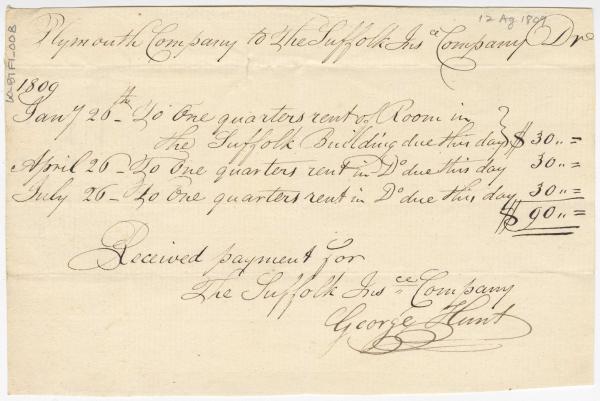 12 Ag 1809
Plymouth Company to The Suffolk Insce Company Dr
1809
Jany 26th - To One quarters rent of Room in
the Suffolk Building due this day } $ 30 ,, =
April 26 - To One quarters rent in Do due this day 30 ,, =
July 26 - To One quarters rent in Do due this day 30 ,, =
$ 90 ,, =
Received payment for
The Suffolk Insce Company
George Hunt